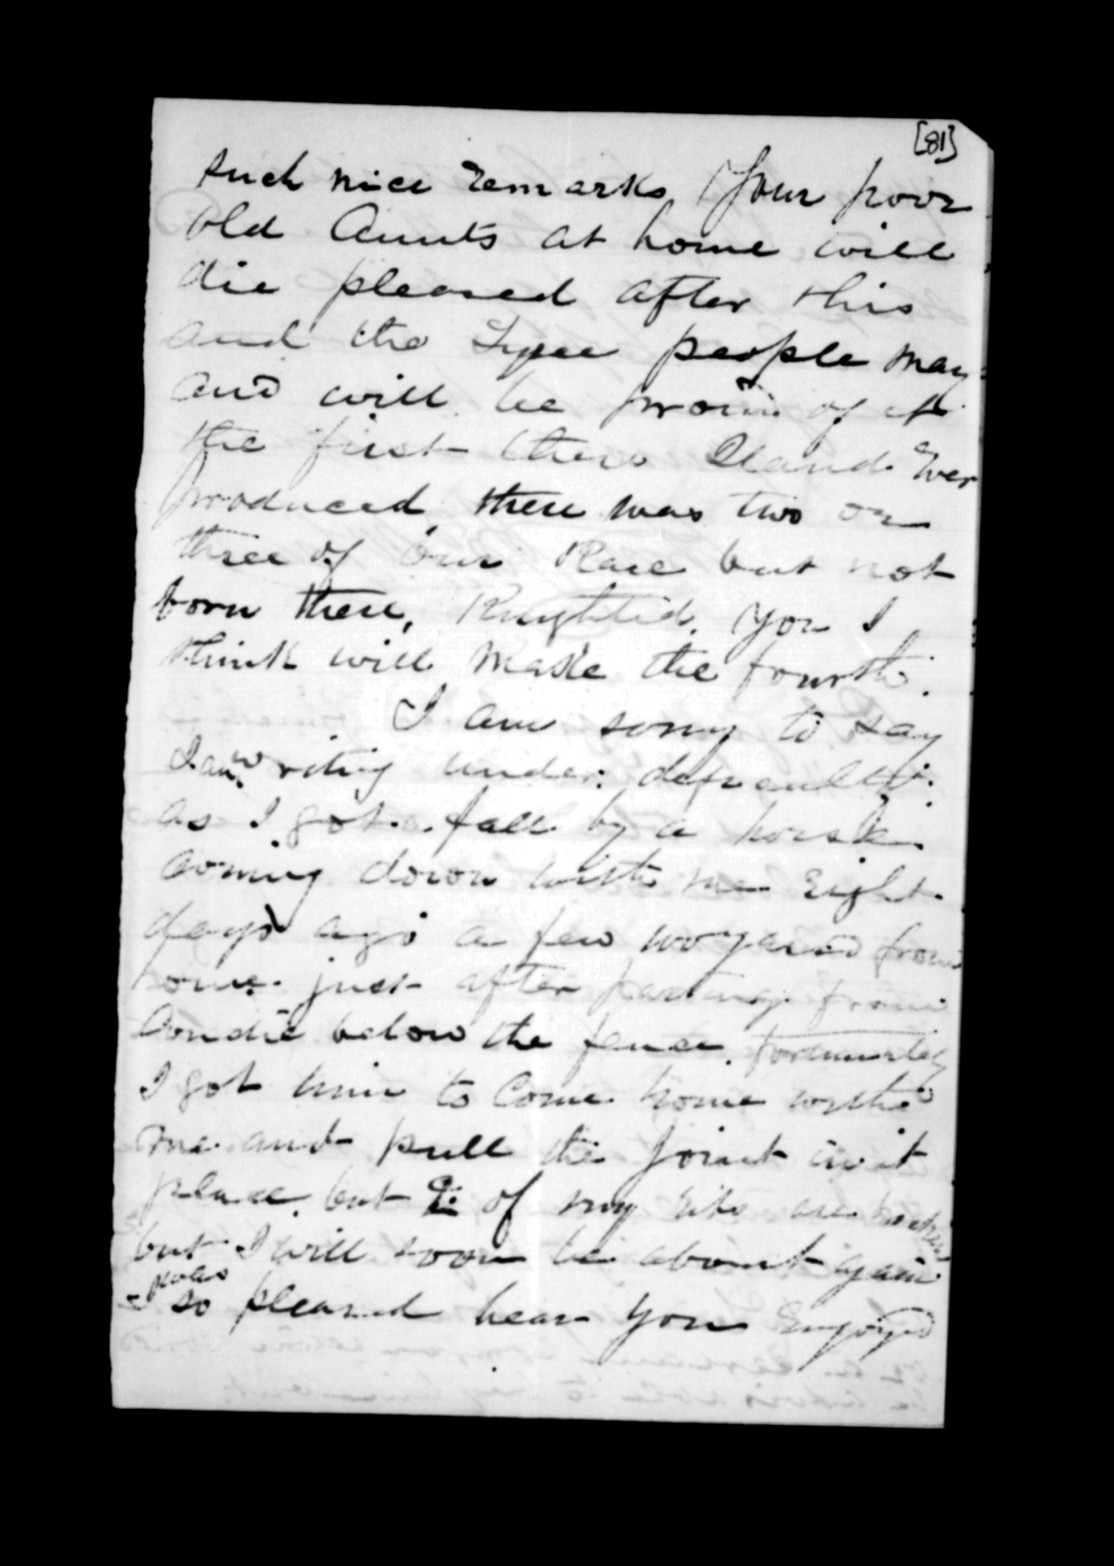 [81]
such nice remarks Your poor
old Aunts at home will
die pleased after this
and the Tyree people may
and will be proud of it
the first there Iland Ever
produced, there was two or
three of our Race but not
born there, Knighted. You I
think will make the fourth.
I am sorry to say
I am writing under
as I got a fall by a horse
coming down with me Eight
days ago a few from
home just after parting from
below the fence. Fortunately
I got him to Come home with
me and pull the Joint in it
place. but 2 of my ribs are
but I will soon be about again
I was so pleased hear you Enjoyed